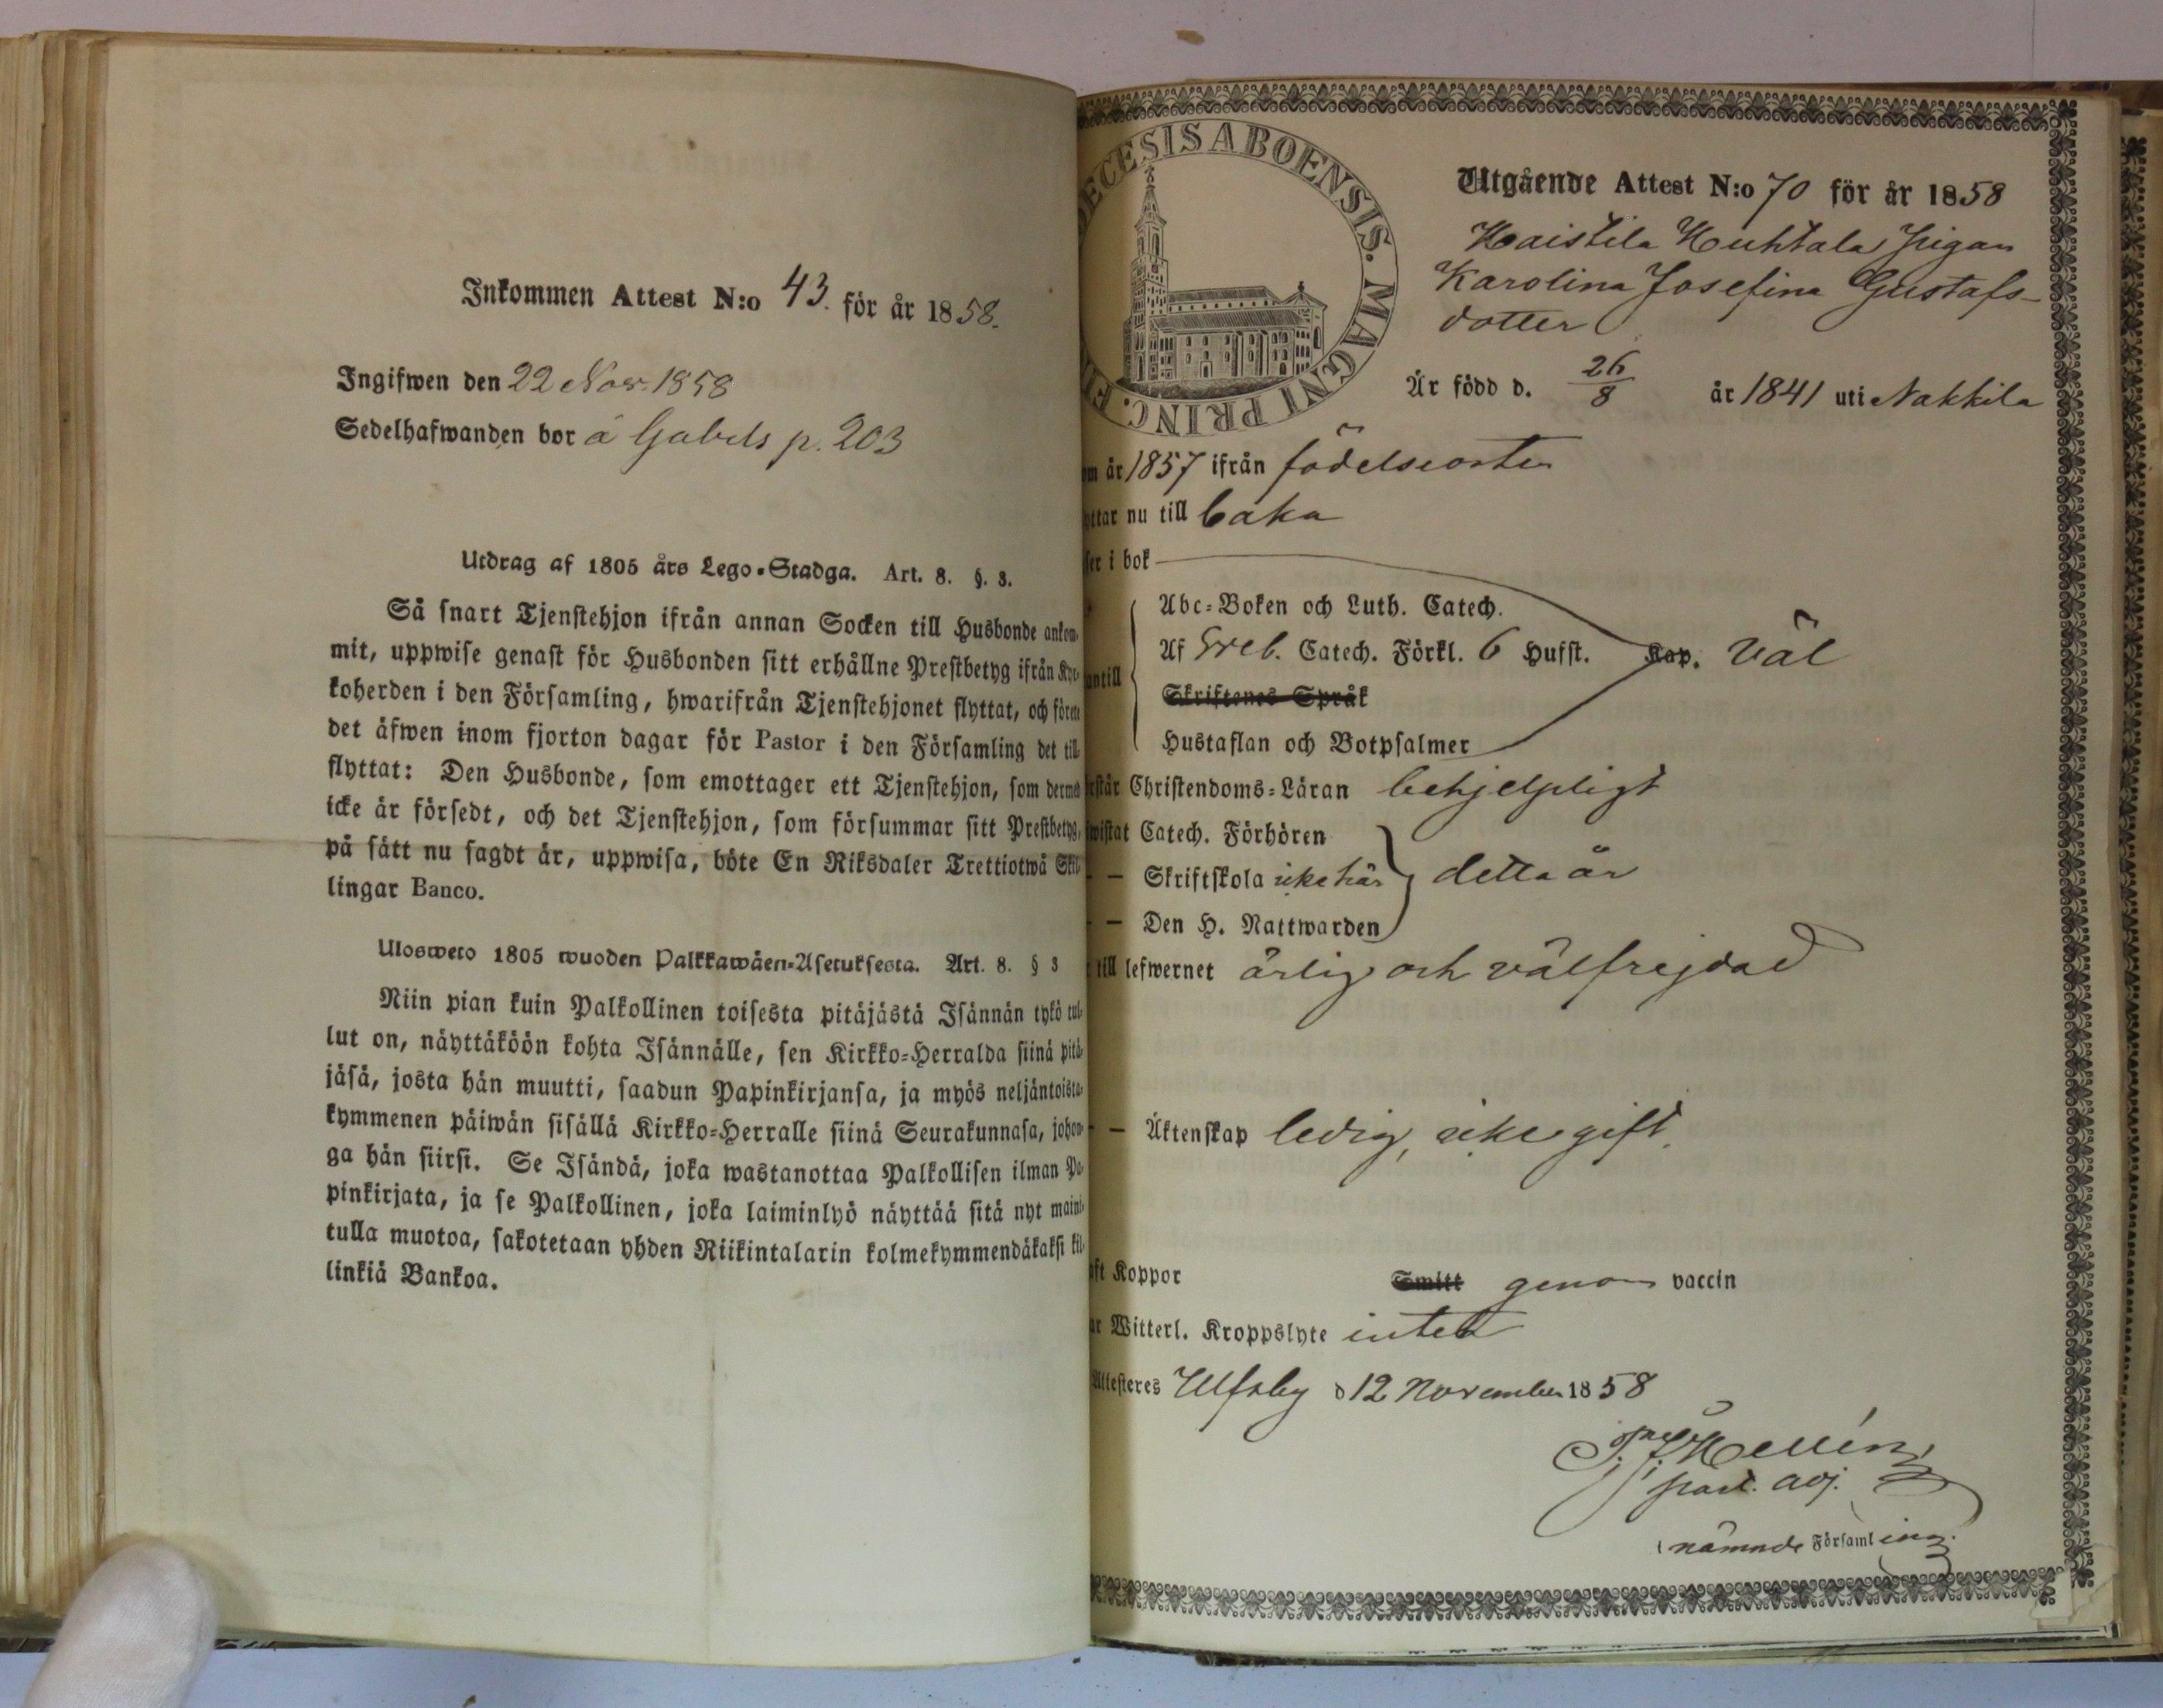 Inkommen Attest N:o 43. för år 1858.
Ingifwen den 22 Nov. 1858
Sedelhafwanden bor å Gabels p. 203
Utdrag af 1805 års Lego-Stadga. Art. 8. §. 3.
Så snart Tjenstehjon ifrån annan Socken till Husbonde ankom-
mit, uppwise genast för Husbonden sitt erhållne Prestbetyg ifrån Kyr-
koherden i den Församling, hwarifrån Tjenstehjonet flyttat, och förete
det äfwen inom fjorton dagar för Pastor i den Församling det till-
flyttat: Den Husbonde, som emottager ett Tjenstehjon, som dermed
icke är försedt, och det Tjenstehjon, som försummar sitt Prestbetyg,
på sätt nu sagdt är, uppwisa, böte En Riksdaler Trettiotwå Skil-
lingar Banco.
Ulosweto 1805 wuoden Palkkawäen-Asetuksesta. Art. 8. § 3
Niin pian kuin Palkollinen toisesta pitäjästä Isännän tykö tul-
lut on, näyttäköön kohta Isännälle, sen Kirkko-Herralda siinä pitä-
jäsä, josta hän muutti, saadun Papinkirjansa, ja myös neljäntoista-
kymmenen päiwän sisällä Kirkko-Herralle siinä Seurakunnasa, johon-
ga hän siirsi. Se Isändä, joka wastanottaa Palkollisen ilman Pa-
pinkirjata, ja se Palkollinen, joka laiminlyö näyttää sitä nyt maini-
tulla muotoa, sakotetaan yhden Riikintalarin kolmekymmendäkaksi kil-
linkiä Bankoa.
DECESIS ABOENSIS. MAGNI PRINC. FI
Utgående Attest N:o 70 för år 1858
Haistila Huhtala Pigan
Karolina Josefina Gustafs-
dotter
Är född d. 26/8 år 1841 uti Nakkila
om år 1857 ifrån födelseorten
yttar nu till baka
ser i bok
Abc-Boken och Luth. Catech.
Af Sveb. Catech. Förkl. 6 Hufst. Kap. väl
antill
Skriftenes Språk
Hustaflan och Botpsalmer
rstår Christendoms-Läran behjelpligt
wistat Catech. Förhören
— Skriftskola icke här detta år
— Den H. Nattwarden
till lefwernet ärlig och välfrejdad
— Äktenskap ledig, icke gift.
aft Koppor Smitt genom vaccin
ar Witterl. Kroppslyte intet
Attesteres Ulfsby d 12 November 1858
Hellén
past. adj.
i nämnde Församling.